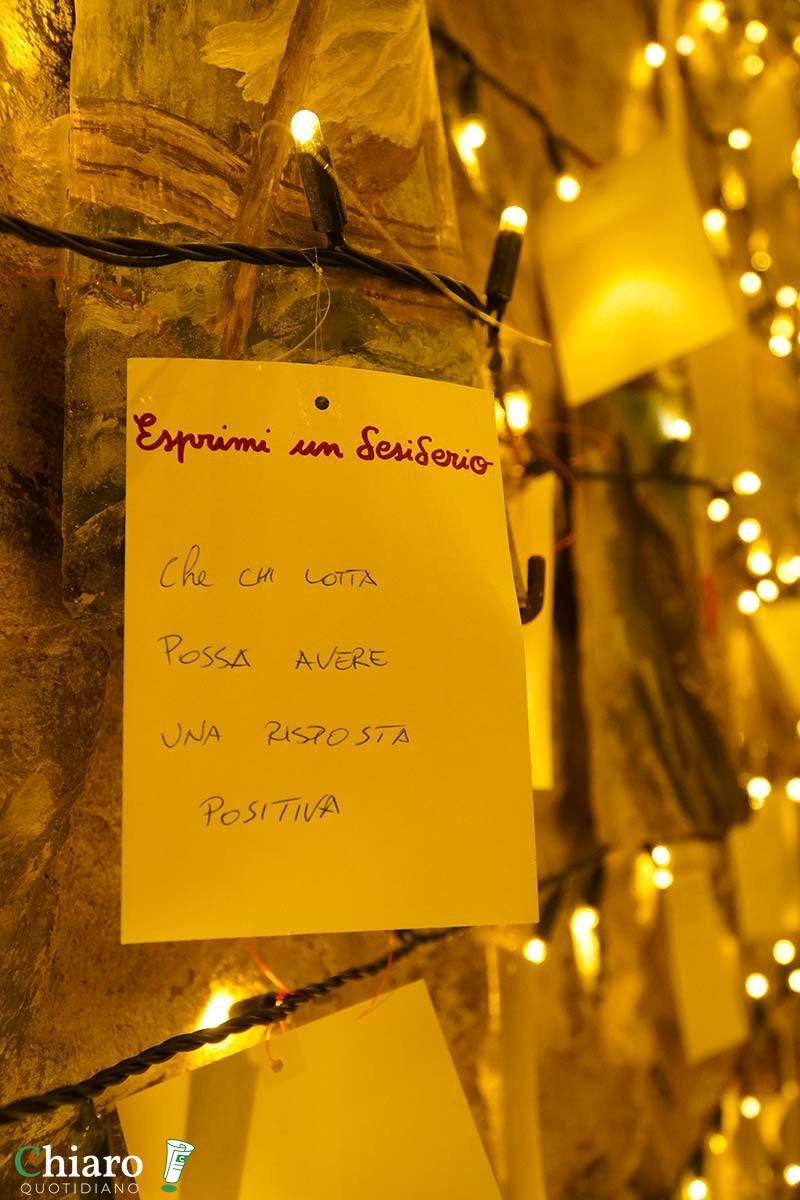 Esprimi un desiderio
Che CHI LOTTA
POSSA AVERE
UNA RISPOSTA
POSITIVA
Chiaro
QUOTIDIANO